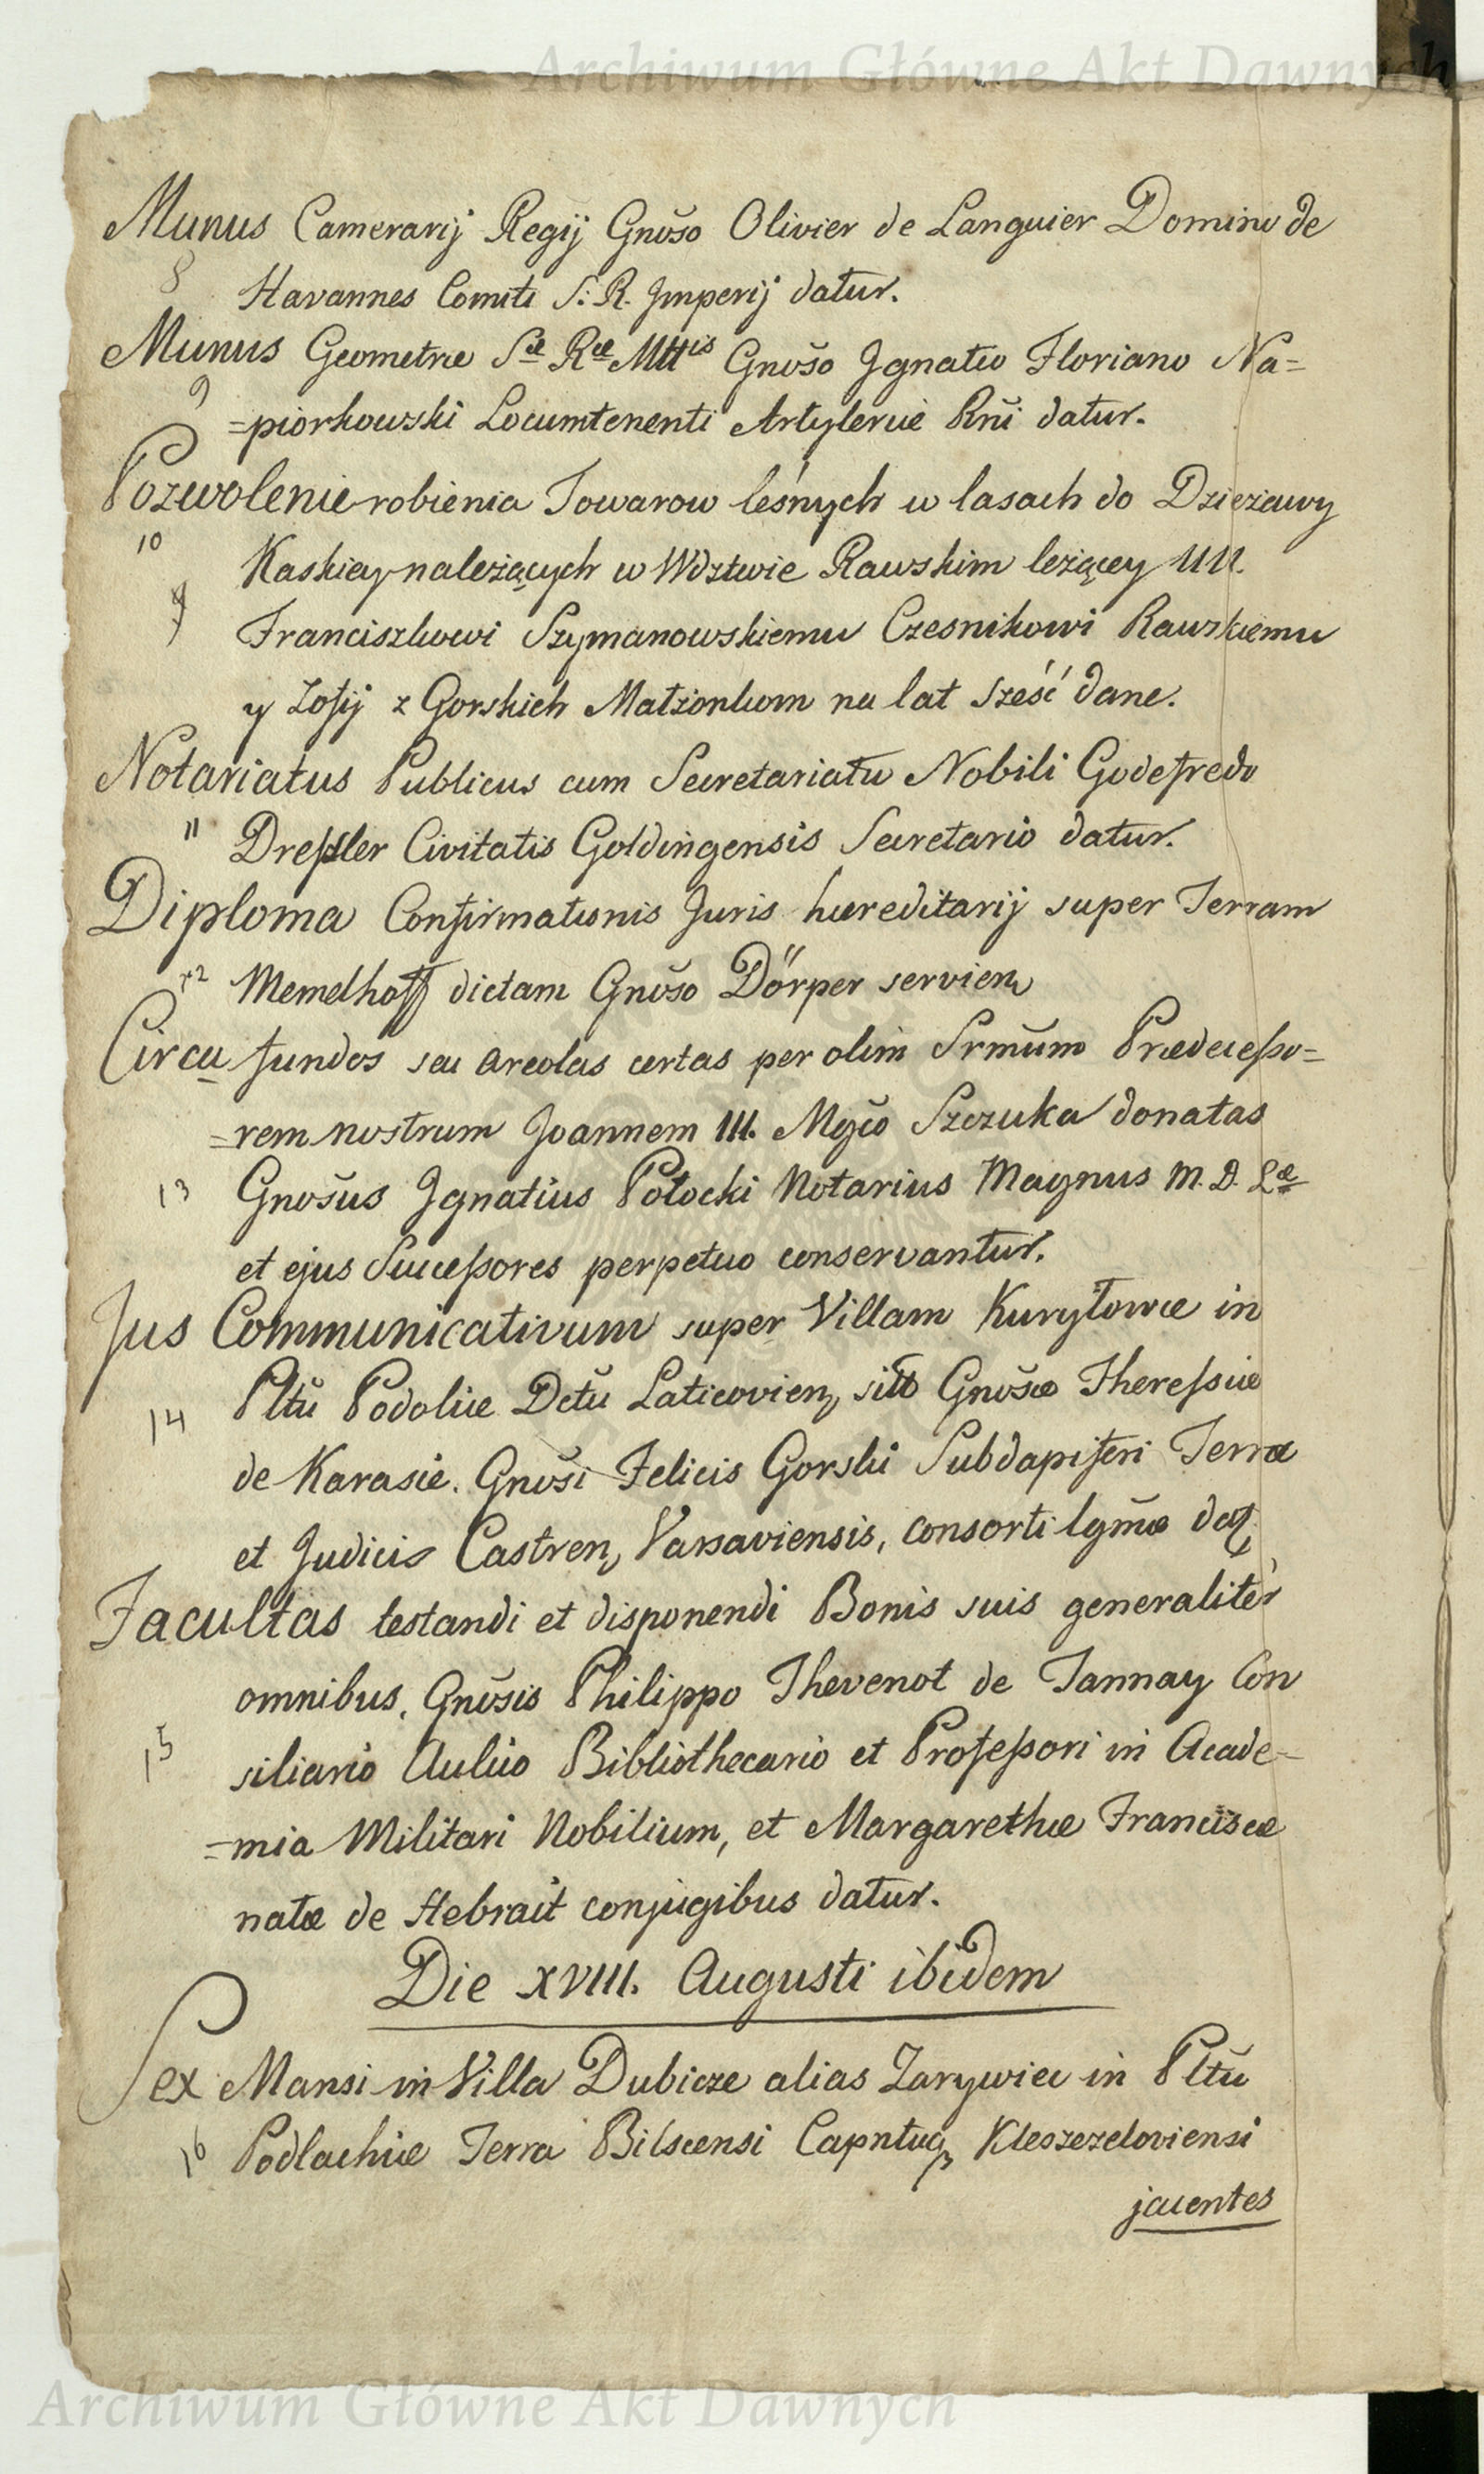 Archiwum Główne Akt Dawnych
Munus Camerarij Regij Gnõso Olivier de Languier Domino de
8 Havannes Comiti S: R. Jmperij datur.
Munus Geometræ Sæ Ræ Mttis Gnõso Jgnatio Floriano Na=
9 =piorkowski Locumtenenti Artyleriæ Rni datur.
Pozwolenie robienia Towarow leśnych w lasach do Dzierżawy
10 Kaskiey należących w Wdztwie Rawskim leżącey UU.
9 Franciszkowi Szymanowskiemu Czesnikowi Rawskiemu
y Zofij z Gorskich Małżonkom na lat sześć dane.
Notariatus Publicus cum Secretariatu Nobili Godefredo
11 Dreßler Civitatis Goldingensis Secretario datur.
Diploma Confirmationis Juris hæreditarij super Terram
12 Memelhoff dictam Gnõso Dörper servien
Circa fundos seu areolas certas per olim Srmũm Prædeceßo=
=rem nostrum Joannem III. Mgco Szczuka donatas
13 Gnõsus Jgnatius Potocki Notarius Magnus M. D. Læ
et ejus Succeßores perpetuo conservantur.
Jus Communicativum super Villam Kuryłowce in
14 Pltũ Podoliæ Dctũ Laticovien, sitt Gnõsæ Thereßiæ
de Karasie. Gnõsi Felicis Gorski Subdapiferi Terræ
et Judicis Castren, Varsaviensis, consorti lgmæ dat
Facultas testandi et disponendi Bonis suis generaliter
omnibus, Gnõsis Philippo Thevenot de Tannay Con
15 siliario Aulico Bibliothecario et Profeßori in Acade=
=mia Militari Nobilium, et Margarethæ Franciscæ
natæ de Hebrait conjugibus datur.
Die XVIII. Augusti ibidem
Sex Mansi in Villa Dubicze alias Zarywiec in Pltũ
16 Podlachiæ Terra Bilscensi Capntuq Kleszczeloviensi
jacentes
Archiwum Główne Akt Dawnych